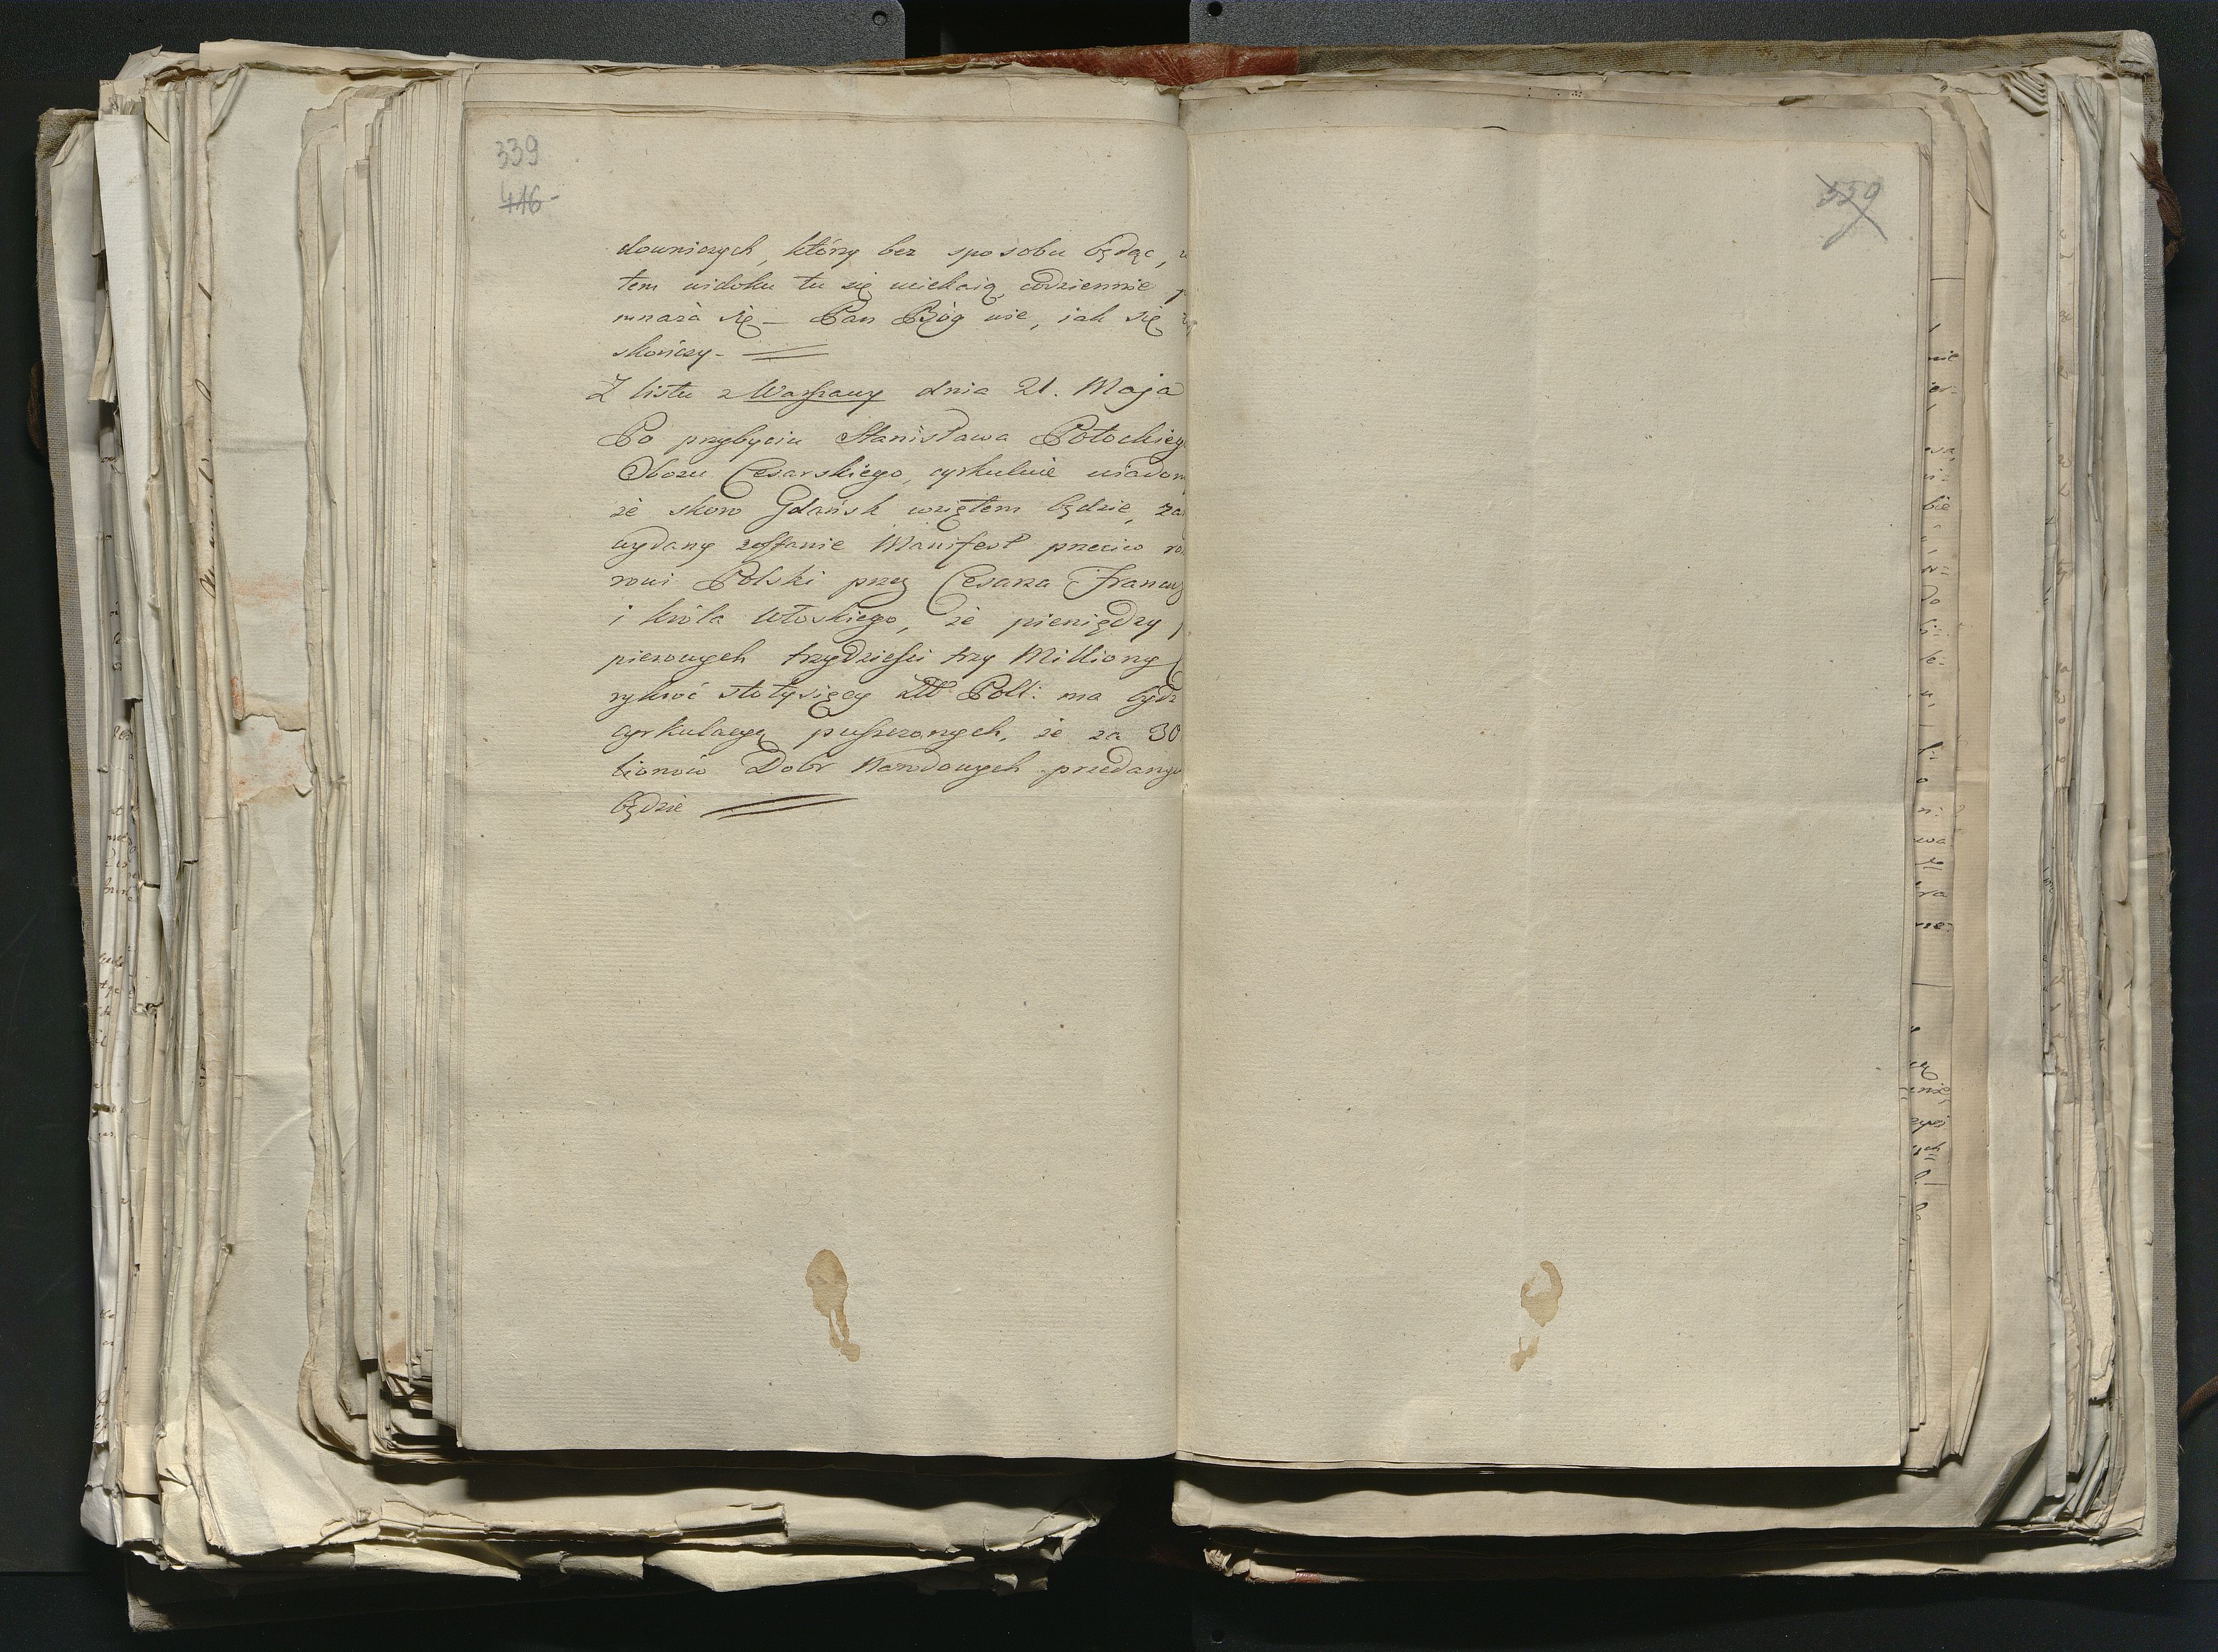 339
416
downiczych, którzy bez sposobu będąc,
tem widoku tu się uciekaią, codziennie
mnaża się – Pan Bóg wie, iak się
skończy. –
Z listu z Warszawy dnia 21. Maja
Po przybyciu Stanisława Potockieg
Obozu Cesarskiego, cyrkuluie wiadom
że skoro Gdańsk wziętem będzie, za
wydany zostanie Manifest przeciw ro
rowi Polski przez Cesarza Francuz
i króla Włoskiego, że pieniędzy
pierowych trzydzieści trzy Milliony
rykroć stotysięcy Poll: ma bydź
cyrkulacyą puszczonych, że za 30
lionów Dobr Narodowych przedanyc
będzie
339